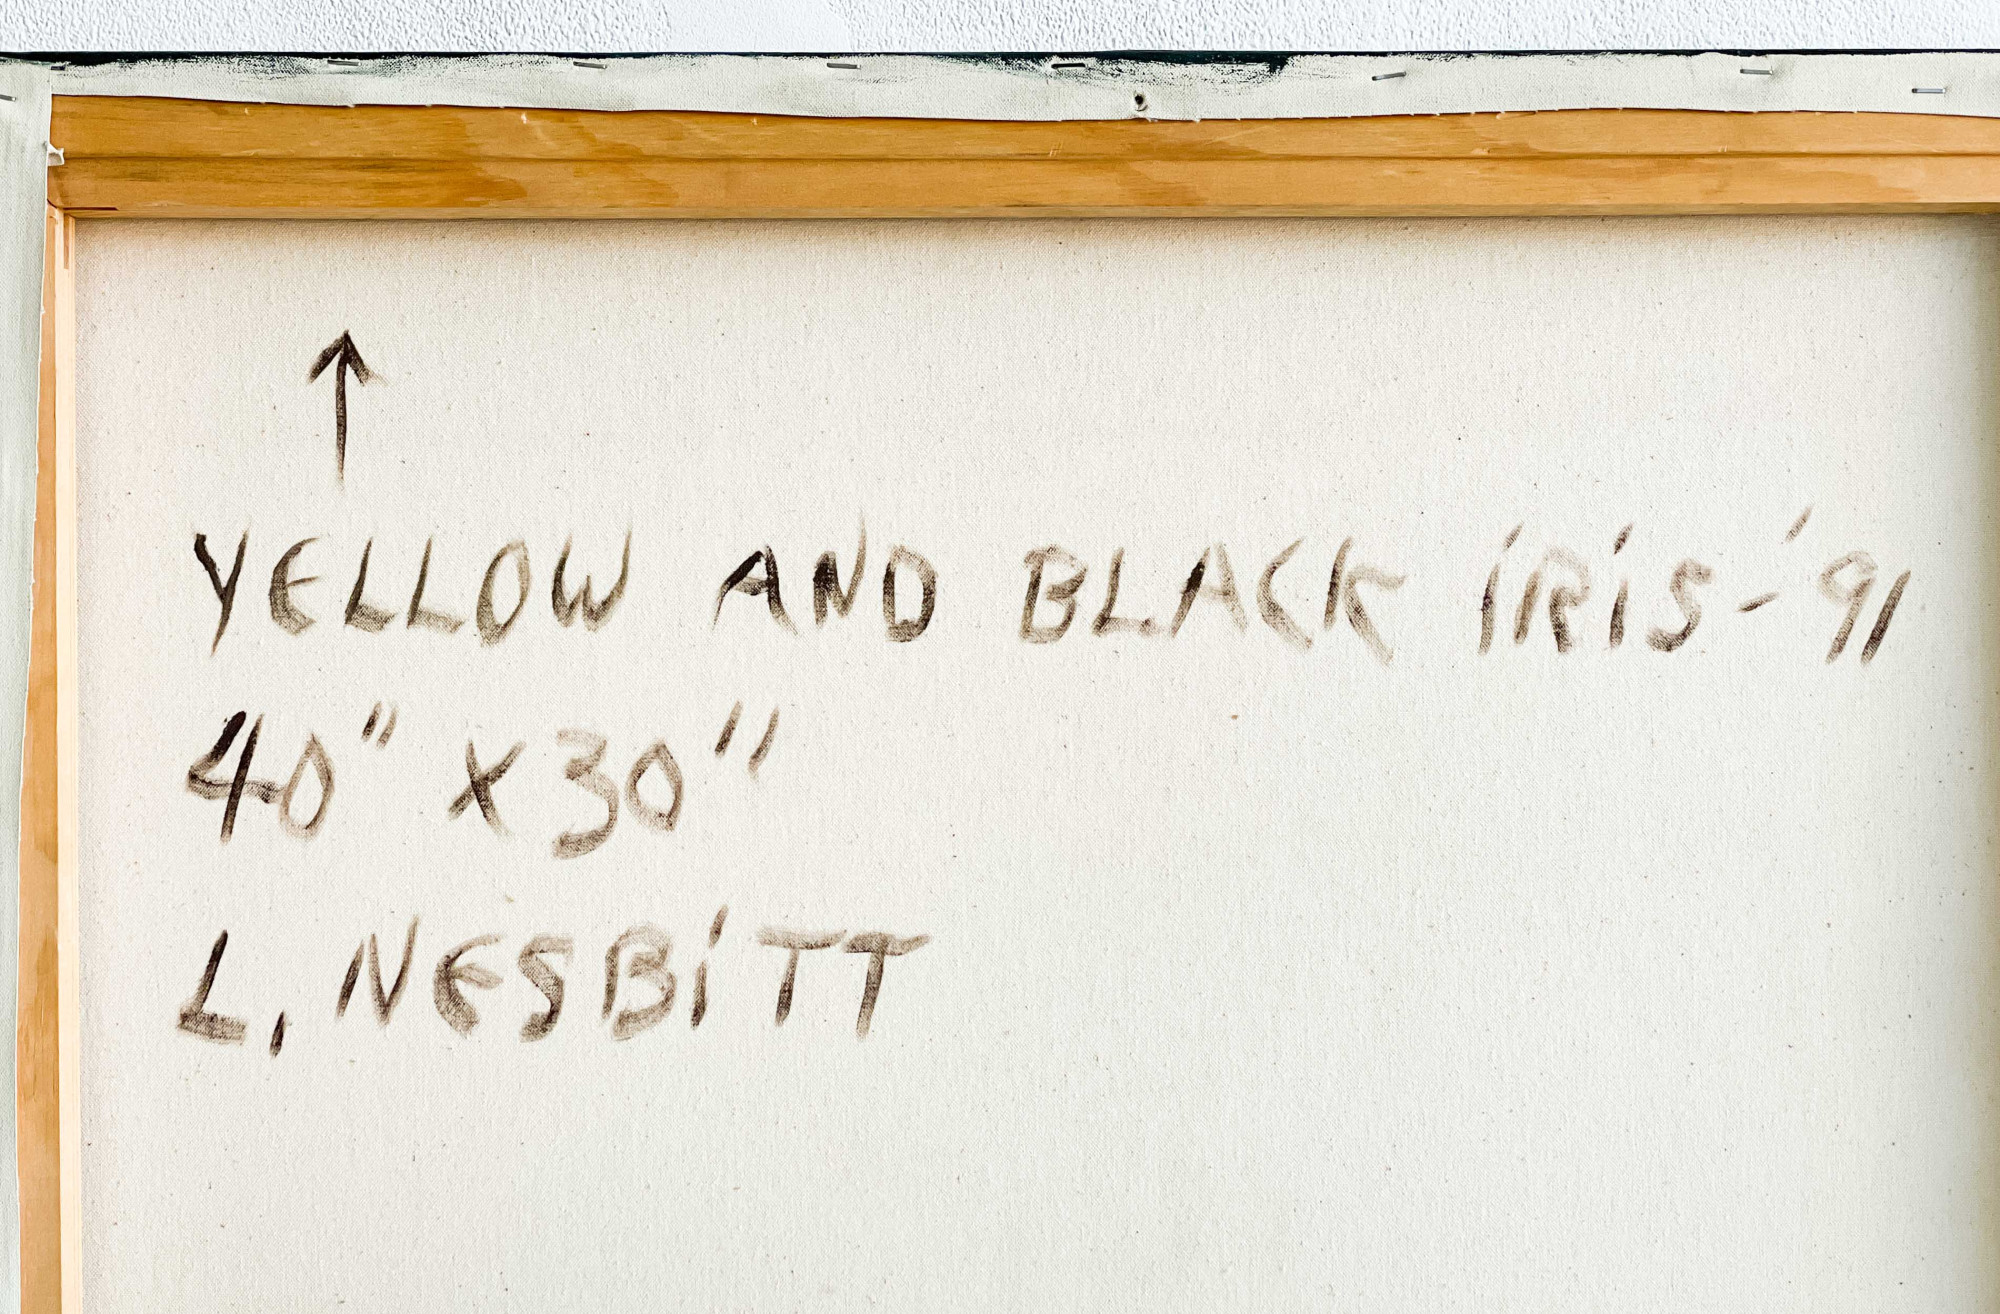 YELLOW AND BLACK iRiS - '91
40" x 30"
L. NESBiTT